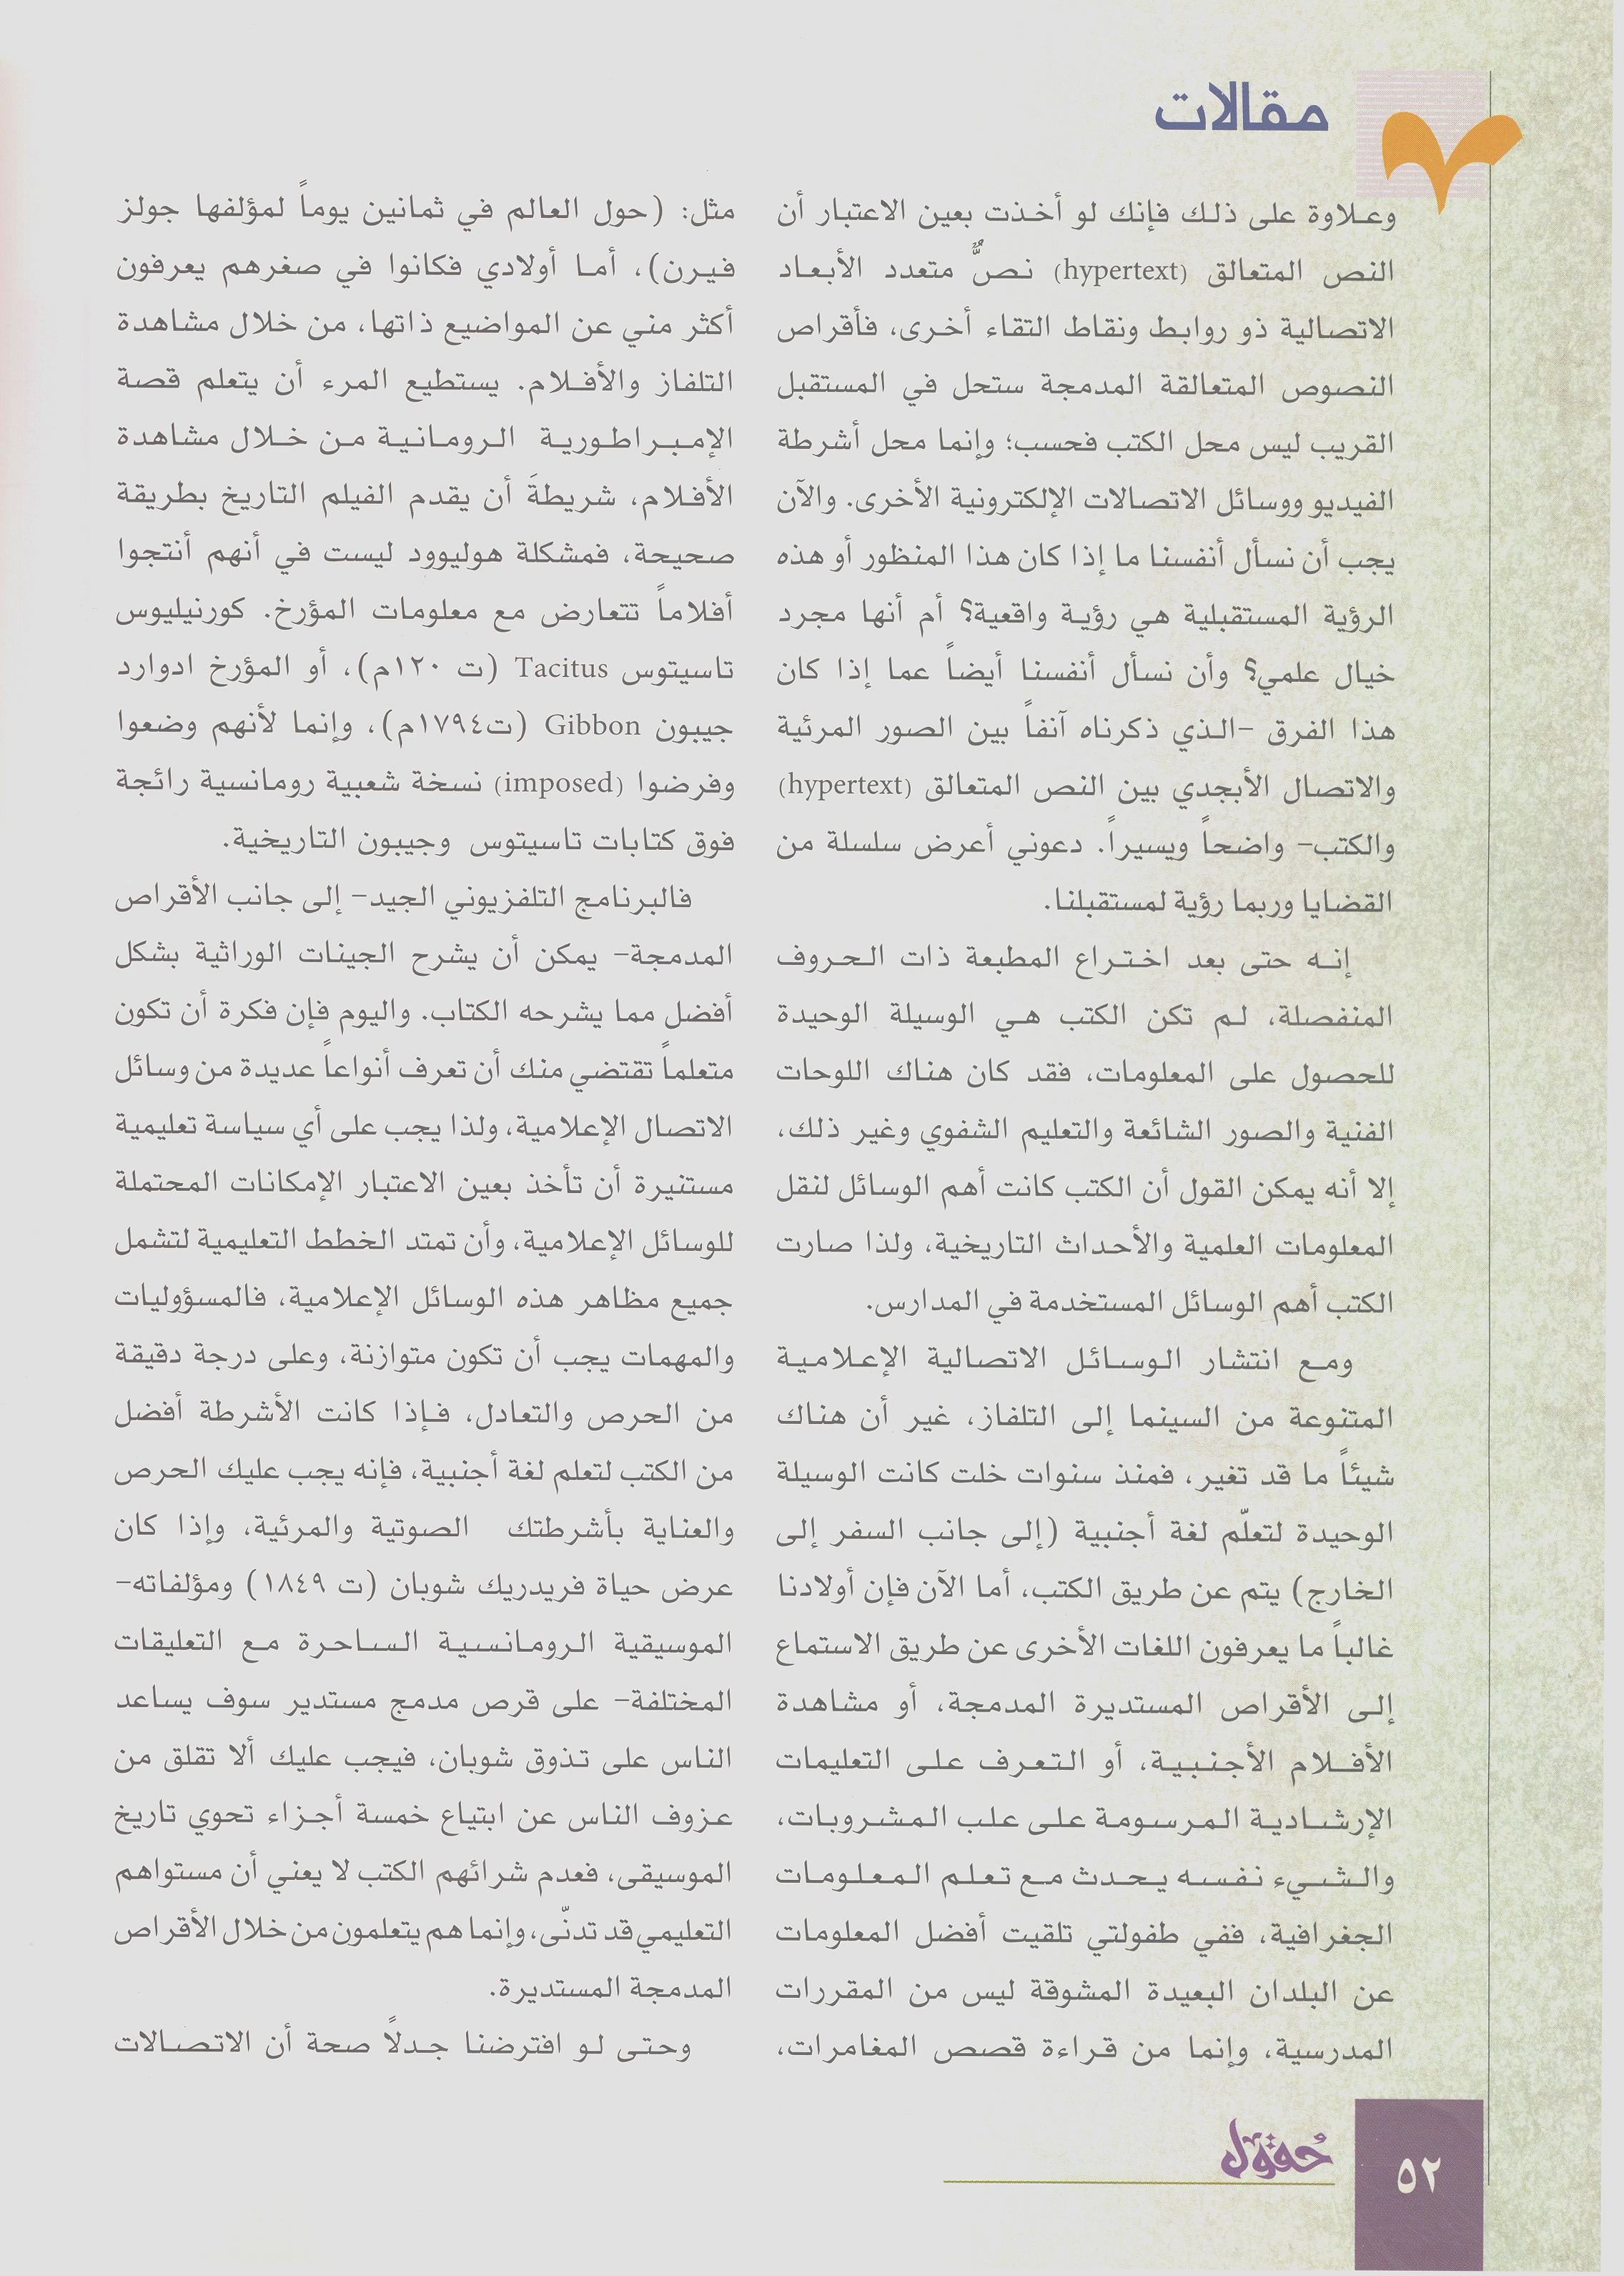 مقالات
وعلاوة على ذلك فإنك لو أخذت بعين الاعتبار أن
النص المتعالق (hypertext) نصٌّ متعدد الأبعاد
الاتصالية ذو روابط ونقاط التقاء أخرى، فأقراص
النصوص المتعالقة المدمجة ستحل في المستقبل
القريب ليس محل الكتب فحسب؛ وإنما محل أشرطة
الفيديو ووسائل الاتصالات الإلكترونية الأخرى. والآن
يجب أن نسأل أنفسنا ما إذا كان هذا المنظور أو هذه
الرؤية المستقبلية هي رؤية واقعية؟ أم أنها مجرد
خيال علمي؟ وأن نسأل أنفسنا أيضاً عما إذا كان
هذا الفرق -الذي ذكرناه آنفاً بين الصور المرئية
والاتصال الأبجدي بين النص المتعالق (hypertext)
والكتب- واضحاً ويسيراً. دعوني أعرض سلسلة من
القضايا وربما رؤية لمستقبلنا.
إنه حتى بعد اختراع المطبعة ذات الحروف
المنفصلة، لم تكن الكتب هي الوسيلة الوحيدة
للحصول على المعلومات، فقد كان هناك اللوحات
الفنية والصور الشائعة والتعليم الشفوي وغير ذلك،
إلا أنه يمكن القول أن الكتب كانت أهم الوسائل لنقل
المعلومات العلمية والأحداث التاريخية، ولذا صارت
الكتب أهم الوسائل المستخدمة في المدارس.
ومع انتشار الوسائل الاتصالية الإعلامية
المتنوعة من السينما إلى التلفاز، غير أن هناك
شيئاً ما قد تغير، فمنذ سنوات خلت كانت الوسيلة
الوحيدة لتعلّم لغة أجنبية (إلى جانب السفر إلى
الخارج) يتم عن طريق الكتب، أما الآن فإن أولادنا
غالباً ما يعرفون اللغات الأخرى عن طريق الاستماع
إلى الأقراص المستديرة المدمجة، أو مشاهدة
الأفلام الأجنبية، أو التعرف على التعليمات
الإرشادية المرسومة على علب المشروبات،
والشيء نفسه يحدث مع تعلم المعلومات
الجغرافية، ففي طفولتي تلقيت أفضل المعلومات
عن البلدان البعيدة المشوقة ليس من المقررات
المدرسية، وإنما من قراءة قصص المغامرات،
مثل: (حول العالم في ثمانين يوماً لمؤلفها جولز
فيرن)، أما أولادي فكانوا في صغرهم يعرفون
أكثر مني عن المواضيع ذاتها، من خلال مشاهدة
التلفاز والأفلام. يستطيع المرء أن يتعلم قصة
الإمبراطورية الرومانية من خلال مشاهدة
الأفلام، شريطةَ أن يقدم الفيلم التاريخ بطريقة
صحيحة، فمشكلة هوليوود ليست في أنهم أنتجوا
أفلاماً تتعارض مع معلومات المؤرخ. كورنيليوس
تاسيتوس Tacitus (ت ١٢٠م)، أو المؤرخ ادوارد
جيبون Gibbon (ت١٧٩٤م)، وإنما لأنهم وضعوا
وفرضوا (imposed) نسخة شعبية رومانسية رائجة
فوق كتابات تاسيتوس وجيبون التاريخية.
فالبرنامج التلفزيوني الجيد- إلى جانب الأقراص
المدمجة- يمكن أن يشرح الجينات الوراثية بشكل
أفضل مما يشرحه الكتاب. واليوم فإن فكرة أن تكون
متعلماً تقتضي منك أن تعرف أنواعاً عديدة من وسائل
الاتصال الإعلامية، ولذا يجب على أي سياسة تعليمية
مستنيرة أن تأخذ بعين الاعتبار الإمكانات المحتملة
للوسائل الإعلامية، وأن تمتد الخطط التعليمية لتشمل
جميع مظاهر هذه الوسائل الإعلامية، فالمسؤوليات
والمهمات يجب أن تكون متوازنة، وعلى درجة دقيقة
من الحرص والتعادل، فإذا كانت الأشرطة أفضل
من الكتب لتعلم لغة أجنبية، فإنه يجب عليك الحرص
والعناية بأشرطتك الصوتية والمرئية، وإذا كان
عرض حياة فريدريك شوبان (ت ١٨٤٩) ومؤلفاته-
الموسيقية الرومانسية الساحرة مع التعليقات
المختلفة- على قرص مدمج مستدير سوف يساعد
الناس على تذوق شوبان، فيجب عليك ألا تقلق من
عزوف الناس عن ابتياع خمسة أجزاء تحوي تاريخ
الموسيقى، فعدم شرائهم الكتب لا يعني أن مستواهم
التعليمي قد تدنّى، وإنما هم يتعلمون من خلال الأقراص
المدمجة المستديرة.
وحتى لو افترضنا جدلاً صحة أن الاتصالات
حُقول
٥٢